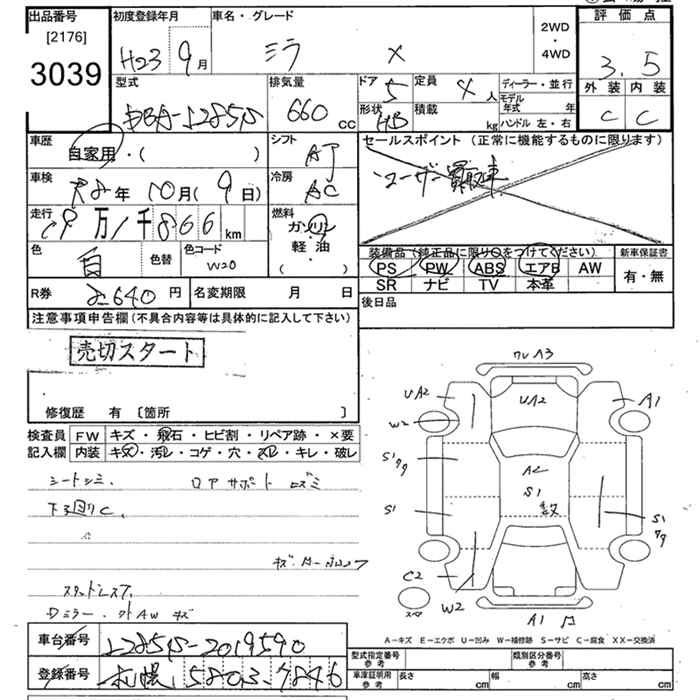 出品番号 初度登録年月 車名・グレード 評価点
[2176]
3039
H23 9月 ミラ X 2WD・4WD 3.5
型式 排気量 ドア 5 定員 4人 ディーラー・並行 外装 内装
DBA-L285S 660CC 形状 HB 積載 kg モデル年式 年 ハンドル 左・右 C C
車歴 シフト セールスポイント (正常に機能するものに限ります)
自家用・( ) AT
ユーザー買取車
車検 R2年 10月(9日) 冷房 AC
走行 9万1千866km 燃料 ガソリン・軽・油( )
色 白 色替 色コード W20
装備品(純正品に限り○をつけてください) 新車保証書
PS PW ABS エアB AW 有・無
SR ナビ TV 本革
R券 2640円 名変期限 月 日 後日品
注意事項申告欄(不具合内容等は具体的に記入して下さい)
売切スタート
修復歴 有 [箇所 ]
検査員記入欄 FW キズ・飛石・ヒビ割・リペア跡・×要
内装 キズ・汚レ・コゲ・穴・スレ・キレ・破レ
シートシミ
下廻りC.
スタッドレス
Dミラー・外AW キズ
UA2 A3 UA2 A1
W2
S1 A2
S1
S1 S1
C2
W2
スペア
A1
A-キズ E-エクボ U-凹み W-補修跡 S-サビ C-腐食 XX-交換済
車台番号 L285S-2019590
登録番号 札幌 580 3 7846
型式指定番号 参考 類別区分番号 参考
車庫証明用 参考 長さ cm 幅 cm 高さ cm